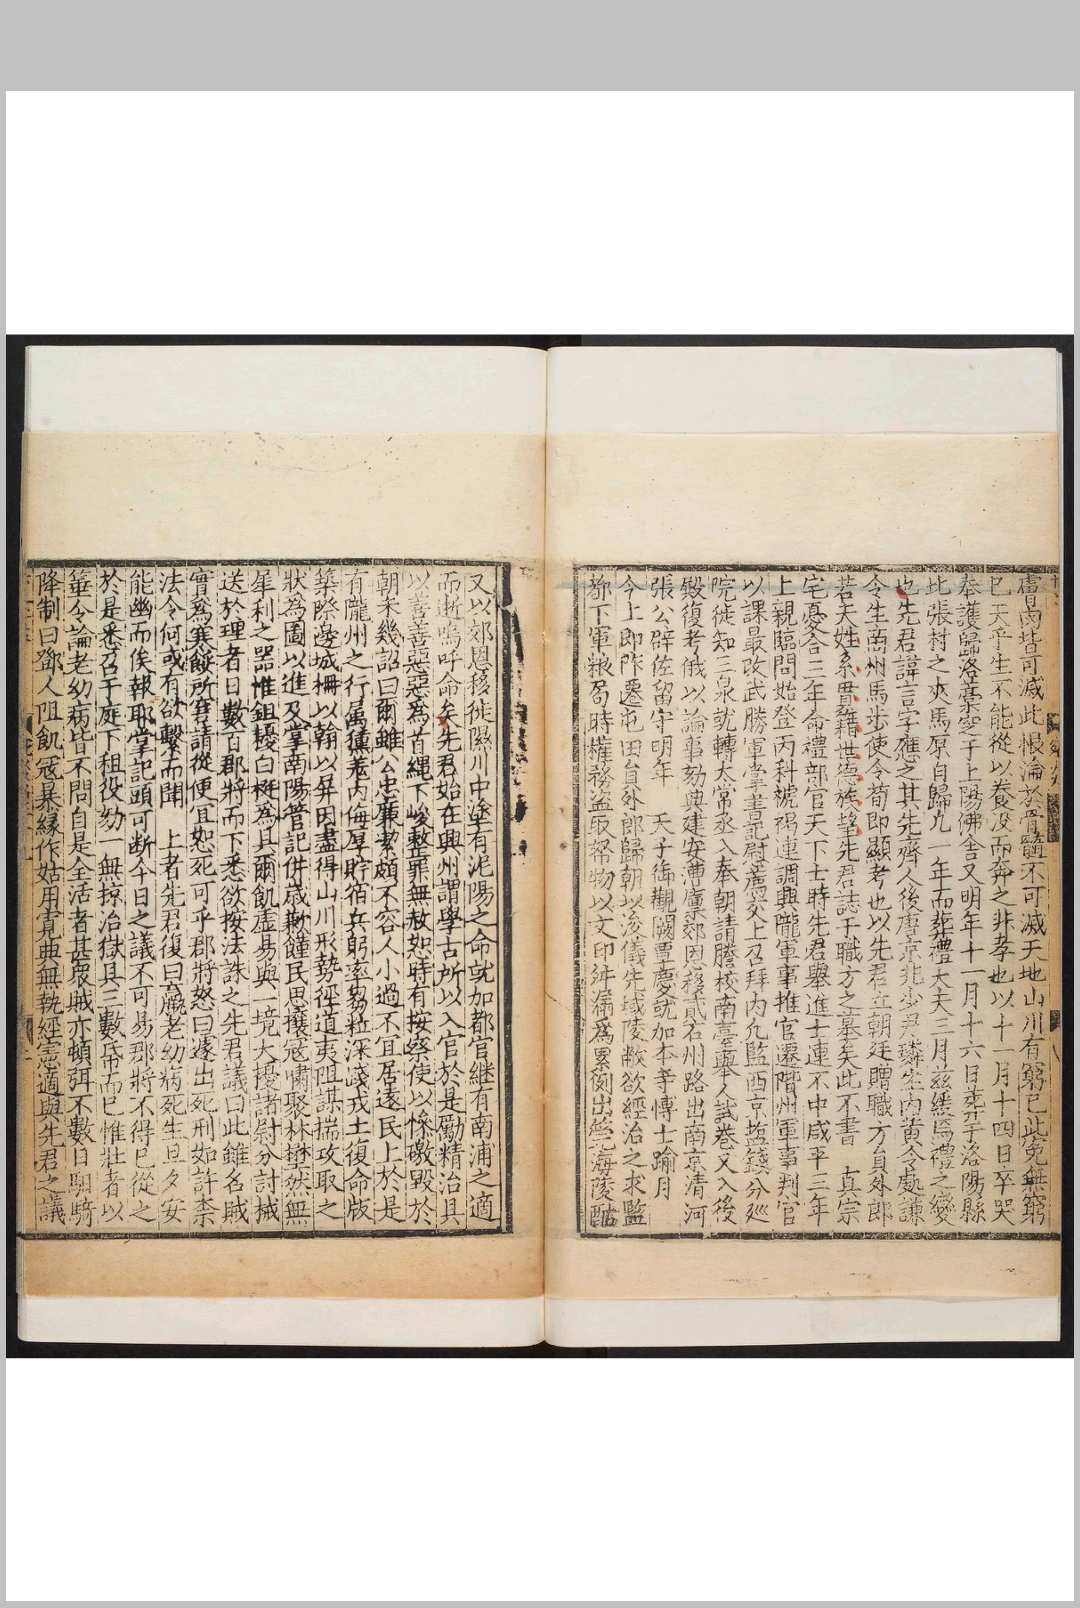 膚鬲皆可滅此恨淪於骨髓不可滅天地山川有窮已此冤無窮
已天乎生不能從以養没而葬之非孝也以十一月十四日卒哭
奉護歸洛藁窆于上陽佛舍又明年十一月十六日葬于洛陽縣
北張村之夾馬原自歸九一年而葬禮大夫三月茲緩焉禮之變
也先君諱言字應之其先齊人後唐京兆少尹璘生内黄令處謙
令生啇州馬步使令荀即顯考也以先君立朝廷贈職方員外郎
若夫姓系貫籍世德族望先君誌于職方之墓矣此不書 真宗
宅憂合三年命禮部官天下士時先君舉進士連不中咸平三年
上親臨問始登丙科號褐連調興隴軍事推官遷階州軍事判官
以課最改武勝軍掌書記尉薦交上召拜内九監西京塩錢分廵
院徙知三泉就轉太常丞入奉朝請謄校南臺舉人試卷又入後
殿復考俄以論事劾與建安漕廣郊因移貳右州路出南京清河
張公辟佐留守明年 天子御觀闕覃慶就加本等愽士踰月
今上即阼遷屯田員外郎歸朝以浚儀先域陵敝欲經治之求監
鄰下軍粮芻時權務盗取帑物以文印𦁎漏爲累例出莞海陵醝
又以郊恩移徙隰川中塗有泥陽之命就加都官継有南浦之適
而逝嗚呼命矣先君始在興州謂學古所以入官於是勵精治具
以善善惡惡爲首縄下峻整罪無赦恕時有按察使以慘礉毀於
朝未幾詔曰爾雖公忠廉㓗頗不容人小過不宜居遠民上於是
有隴州之行属獯羗内侮厚貯宿兵躬率芻粒深峻戎土復命版
築際邊城柵以翰以屏因盡得山川形勢徑道夷阻謀揣攻取之
狀為圖以進及掌南陽管記併歳歉饉民思攘冦嘯聚林樊然無
犀利之器惟鉏擾白梃為具爾飢虚易與一境大擾諸尉分討械
送於理者日數百郡將而下悉欲按法誅之先君議曰此雖名賊
實為寒餒所窘請從便宜恕死可乎郡將怒曰遽出死刑如許柰
法令何或有欲繫而聞 上者先君復曰羸老幼病死生旦夕安
能幽而俟報耶掌記頭可斷今日之議不可易郡將不得已從之
於是悉召于庭下租役劾一無掠治獄具三數帋而已惟壯者以
箠令論老幼病皆不問自是全活者甚衆賊亦頓弭不數日馹騎
降制曰鄧人阻飢冦暴縁作姑用寛典無執經憲適與先君之議